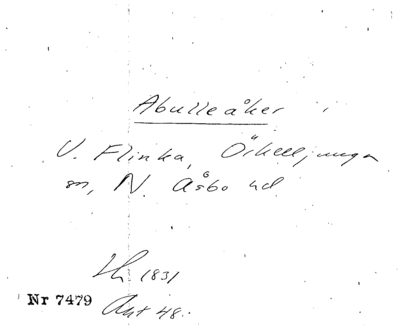 Abulleåker
V. Flinka, Örkelljunga
sn, N. Åsbo hd
Lh 1831
Nr 7479
Akt 48.